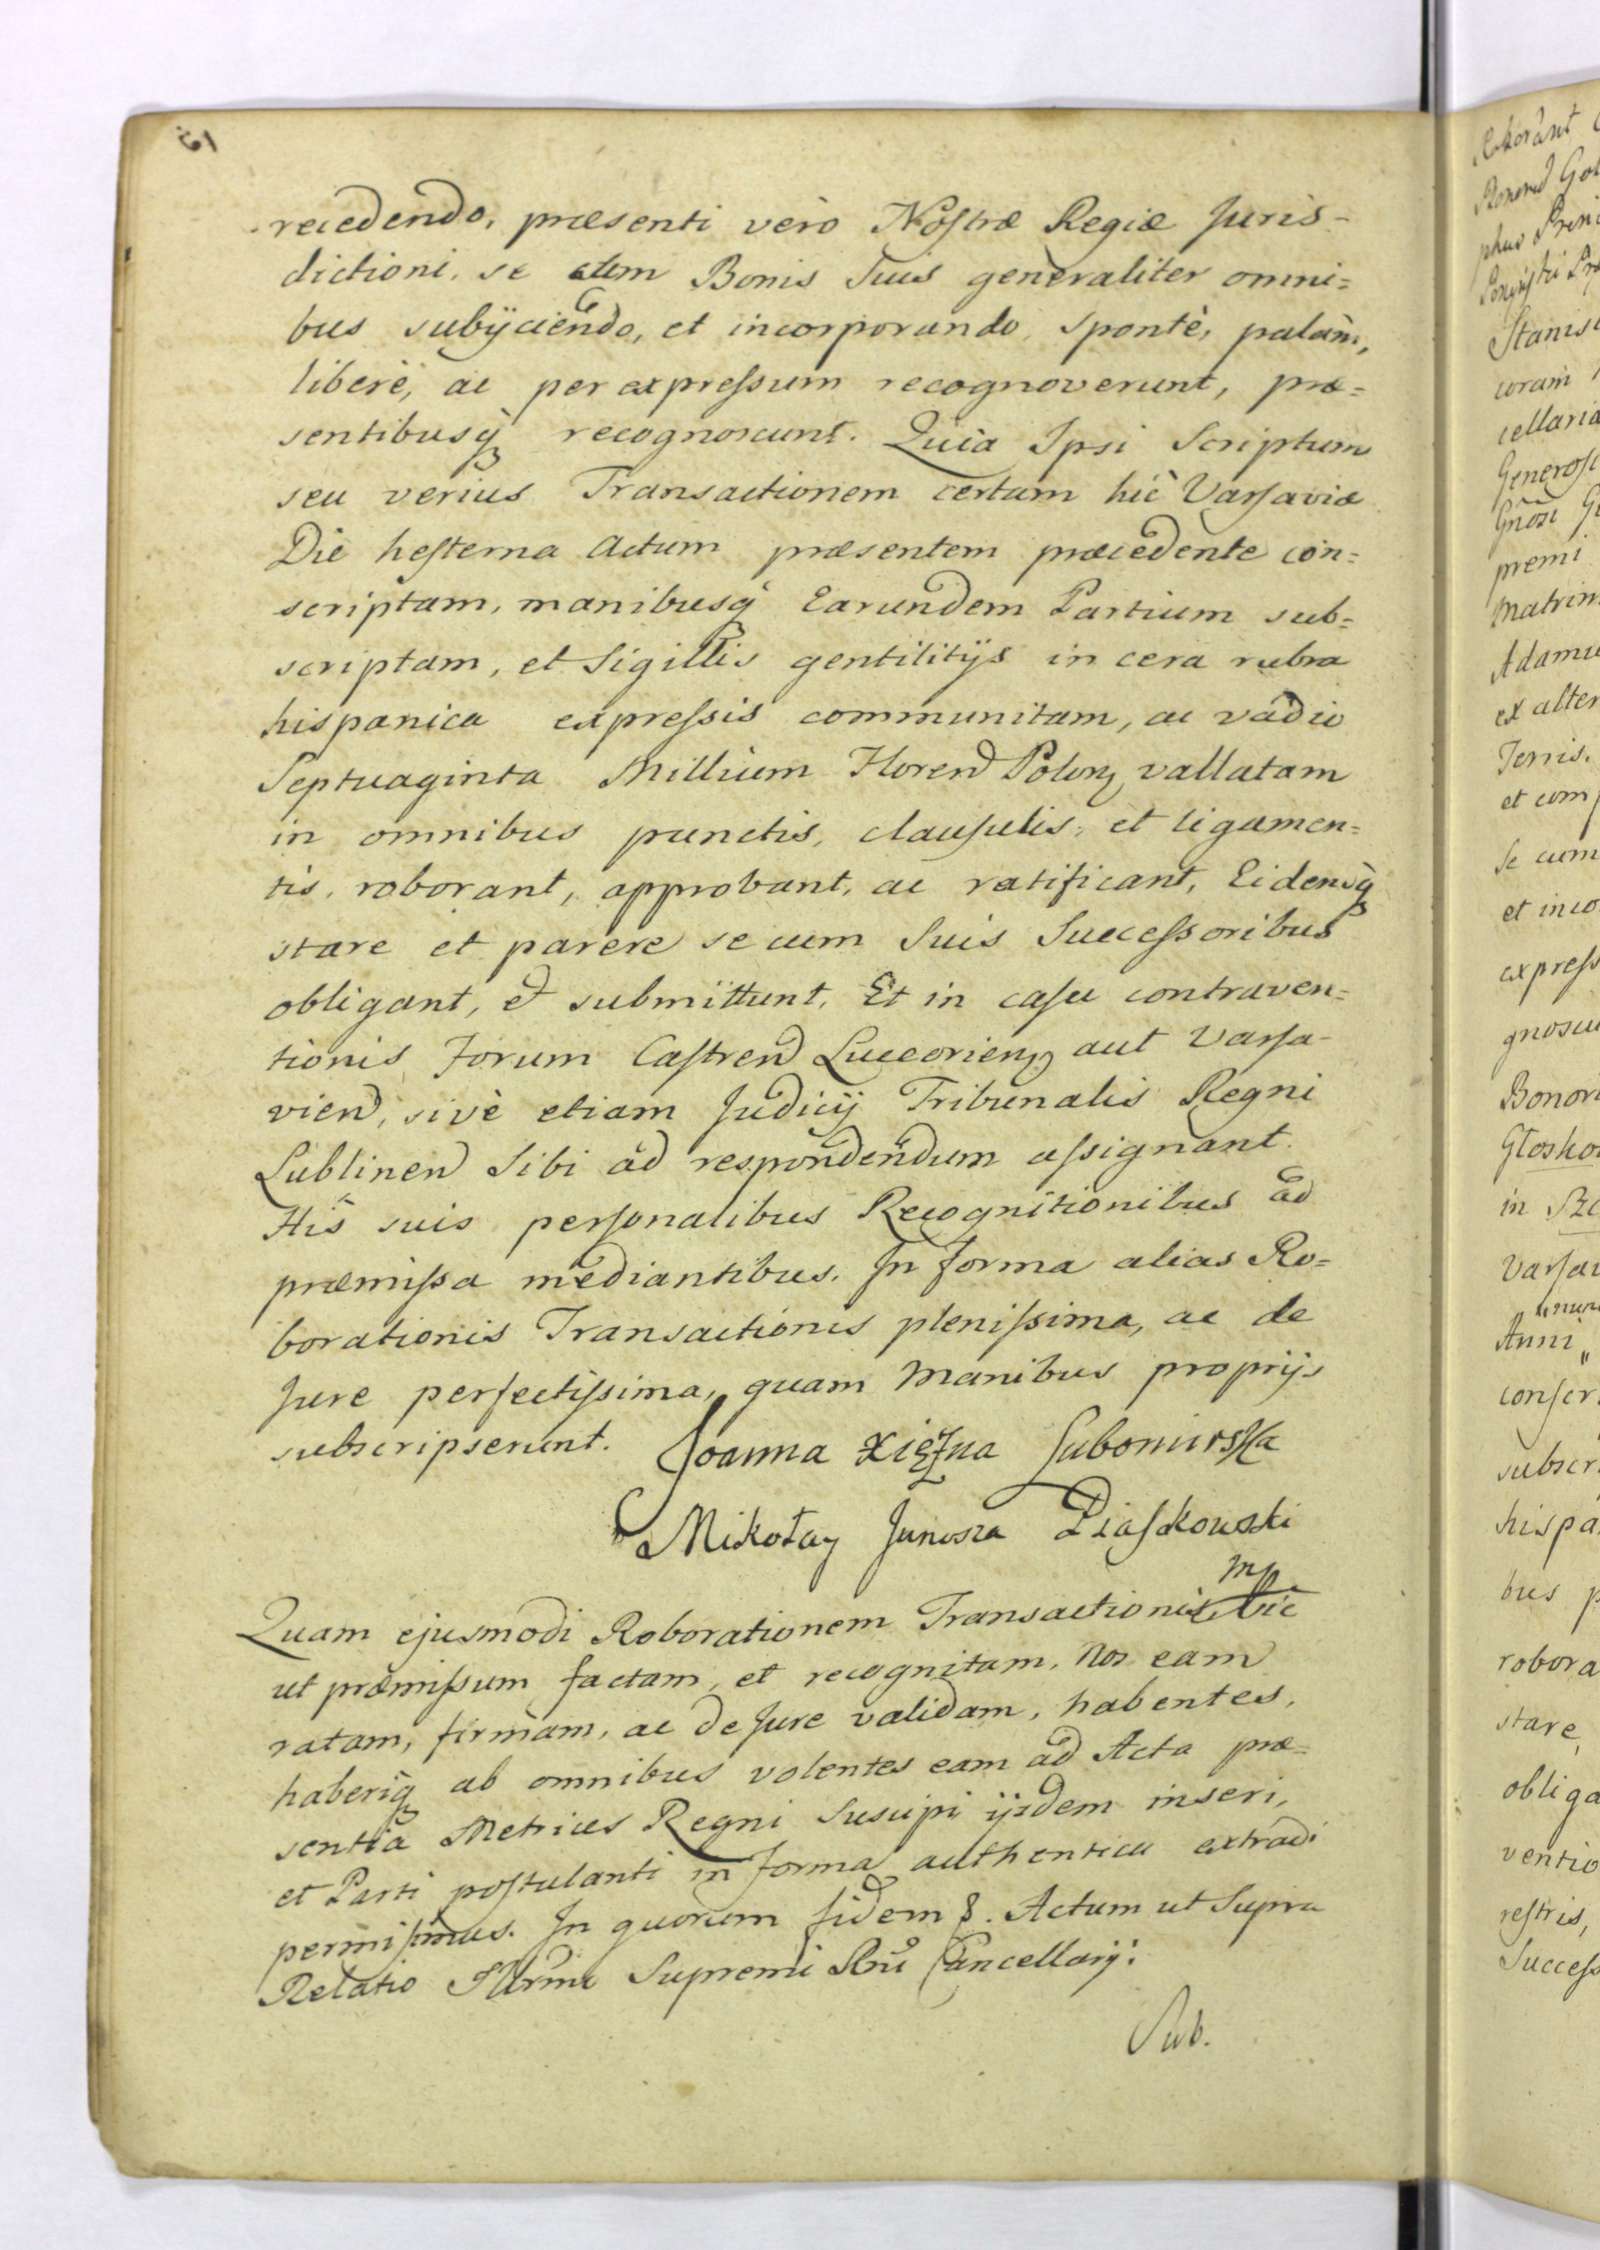 recedendo, præsenti verò Nostræ Regiæ Juris-
dictioni, se cum Bonis Suis generaliter omni=
bus subÿciendo, et incorporando, spontè, palàm,
liberè, ac per expressum recognoverunt, præ=
sentibusq̀ recognoscunt. Quia Ipsi Scriptum
seu verius Transactionem certam hìc Varsaviæ
Die hesterna Actum præsentem præcedente con=
scriptam, manibusq̀ Earundem Partium sub=
scriptam, et Sigillis gentilitÿs in cera rubra
hispanica expressis communitam, ac vadio
Septuaginta Millium Floren Polon vallatam
in omnibus punctis, clausulis, et ligamen=
tis, roborant, approbant, ac ratificant, Eidemq̀
stare et parere se cum Suis Successoribus
obligant, et submittunt, Et in casu contraven=
tionis Forum Castren Luceorien aut Varsa-
vien, sivè etiam Judicÿ Tribunalis Regni
Lublinen Sibi ad respondendum assignant.
His suis personalibus Recognitionibus ad
præmissa mediantibus. In forma alias Ro=
borationis Transactionis plenissima, ac de
Jure perfectissima, quam Manibus proprÿs
subscripserunt. Joanna Xiężna Lubomirska
Mikołay Junosza Piaskowski
mp
Quam ejusmodi Roborationem Transactionis hìc
ut præmissum factam, et recognitam, Nos eam
ratam, firmam, ac de Jure validam, habentes,
haberiq̀ ab omnibus volentes eam ad Acta præ=
sentia Metrices Regni Suscipi ÿsdem inseri,
et Parti postulanti in forma authentica extradi
permisimus. In quorum fidem &. Actum ut Supra
Relatio Supremi Rni Cancellarÿ.
Sub.
Stanis
coram
Generos
premi
Matrim
ex alter
Terris.
et com
se cum
et inco
express
Bonor
in
Anni
conscr
subscr
hispa
bus p
robora
stare,
obliga
ventio
restris,
Success